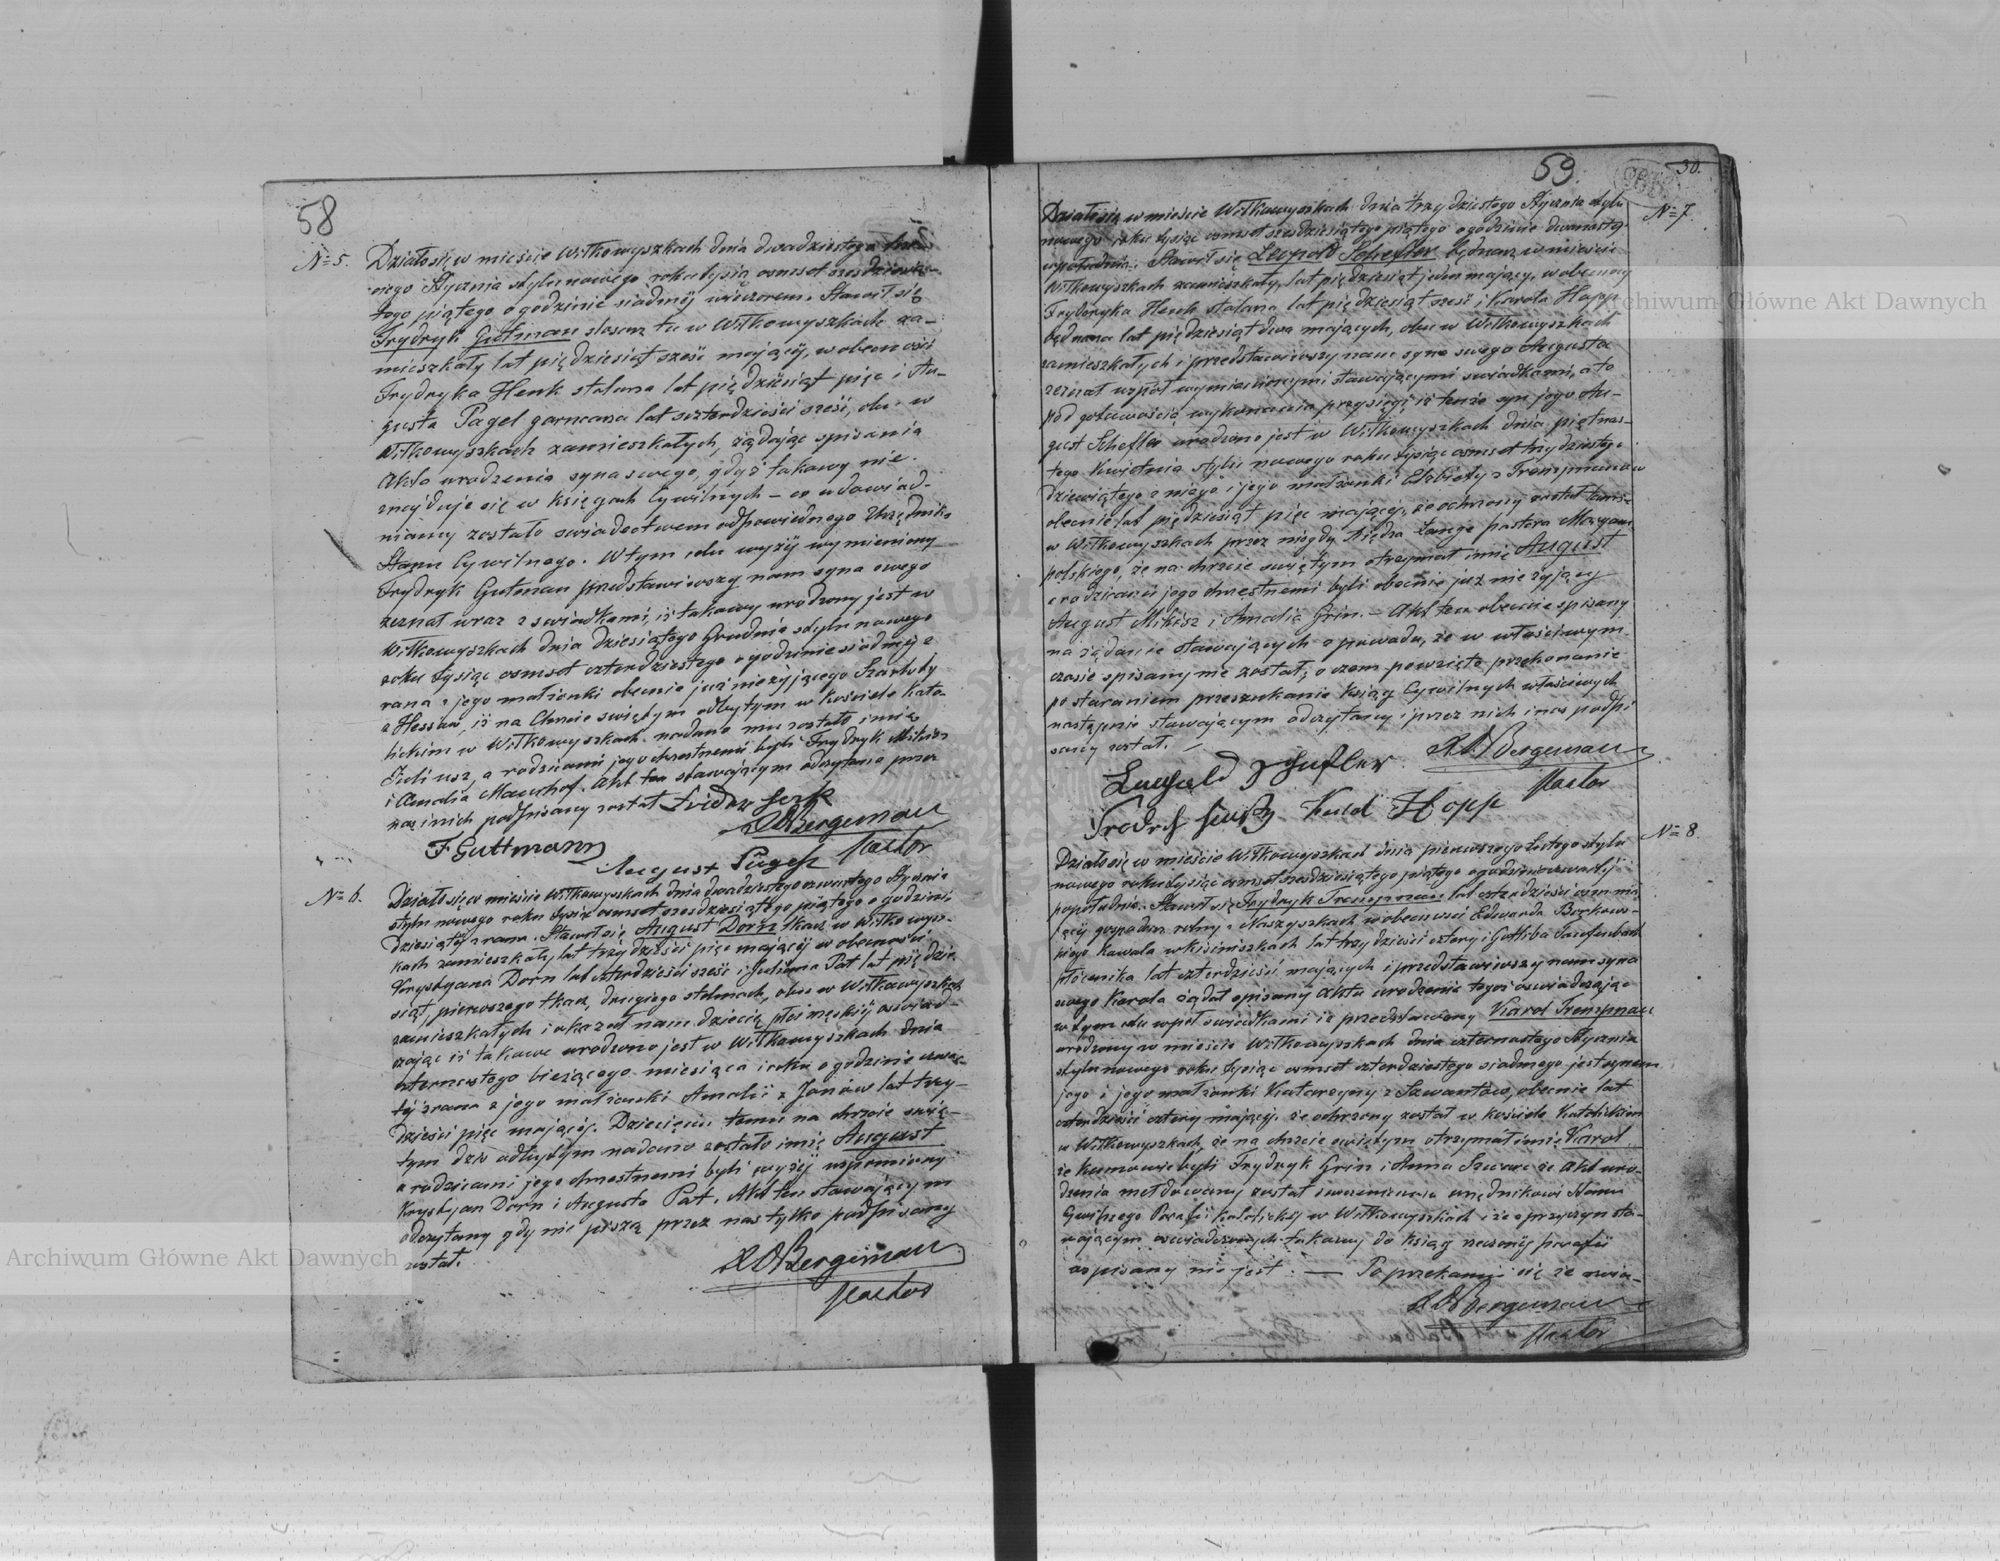 58
N=5. Działo się w mieście Wiłkowyszkach dnia dwudziestego
nego Stycznia stylu nowego roku tysiąc osmset sześdziesią-
tego piątego o godzinie siódmej wieczorem. Stawił się
Frydryk Gutman slosarz tu w Wiłkowyszkach za-
mieszkały lat pięćdziesiąt sześć mający, w obecności
Frydryka Henk stalma lat pięćdziesiąt pięć i Au-
gusta Pagel garncarza lat czterdzieści sześć, obu w
Wiłkowyszkach zamieszkałych, żądając spisania
Akta urodzenia syna swego, gdyż takowy nie
znajduje się w księgach Cywilnych – co udowod-
niamy zostało świadectwem odpowiednego Urzędnika
Stanu Cywilnego. W tym celu wyżej wymieniony
Frydryk Gutman przedstawiwszy nam syna swego
zeznał wraz z świadkami, iż takowy urodzony jest w
Wiłkowyszkach dnia dziesiątego Grudnia stylu nowego
roku tysiąc osmset czterdziestego o godzinie siódmej z
rana z jego małżonki obecnie już nieżyjącego Szarloty
z Hessów, iż na Chrzcie świętym odbytym w kościele Kato-
lickim w Wiłkowyszkach nadano mu zostało imię
Juliusz, a rodzicami jego chrzestnemi byli Frydryk
i Amalia Mauerhof. Akt ten stawającym odczytany przez
nas i nich podpisany został
F Guttmann
A Bergeman
August Pagel Pastor
N=6. Działo się w mieście Wiłkowyszkach dnia dwudziestego czwartego Stycznia
stylu nowego roku tysiąc osmset sześdziesiątego piątego o godzinie
dziesiątej z rana. Stawił się August Dorn tkacz w Wiłkowysz-
kach zamieszkały lat trzydzieści pięć mający w obecności
Krystyana Dorn lat czterdzieści sześć i Juliana Pat lat pięćdzie-
siąt, pierwszego tkacz, drugiego stelmach, obu w Wiłkowyszkach
zamieszkałych i okazał nam dziecię płci męskiej oświad-
czając iż takowe urodzone jest w Wiłkowyszkach dnia
czternastego bieżącego miesiąca i roku o godzinie czwar-
tej z rana z jego małżonki Amalii z Janów lat trzy-
dzieści pięć mającej. Dziecięciu temu na chrzcie świę-
tym dziś odbytym nadano zostało imię August
a rodzicami jego chrzestnemi byli wyżej wspomniony
Krystyan Dorn i Augusta Pat. Akt ten stawającym
odczytany gdy nie piszą przez nas tylko podpisany
został.
A Bergeman
Pastor
59
30.
N=7. Działo się w mieście Wiłkowyszkach dnia trzydziestego Stycznia stylu
nowego roku tysiąc osmset sześdziesiątego piątego o godzinie dwunastej
w południe. Stawił się Leopold Schefler bednarz w mieście
Wiłkowyszkach zamieszkały, lat pięćdziesiąt jeden mający, w obecności
Fryderyka Henk stalma lat pięćdziesiąt sześć i Karola Hopp
bednarza lat pięćdziesiąt dwa mających, obu w Wiłkowyszkach
zamieszkałych i przedstawiwszy nam syna swego Augusta
zeznał współ wymienionymi stawającymi świadkami, a to
pod gotowością wykonania przysięgi, iż tenże syn jego Au-
gust Schefler urodzony jest w Wiłkowyszkach dnia piętnas-
tego Kwietnia stylu nowego roku tysiąc osmset trzydziestego
dziewiątego z niego i jego małżonki Elżbiety z
obecnie lat pięćdziesiąt pięć mającej, że ochrzony został
w Wiłkowyszkach przez niegdy Xiędza Lange pastora Maryam-
polskiego, że na chrzcie świętym otrzymał imię August
a rodzicami jego chrzestnemi byli obecnie już nie żyjący
August Mikisz i Amalia Grin. – Akt ten obecnie spisany
na żądanie stawających z powodu, że w właściwym
czasie spisany nie został, o czem powzięto przekonanie
po staraniem przeszukanie ksiąg Cywilnych właściwych
następnie stawającym odczytany i przez nich i nas podpi
sany został.
A Bergeman
Leopold Schefler Pastor
Karl Hopp
N=8
Działo się w mieście Wiłkowyszkach dnia pierwszego Lutego stylu
nowego roku tysiąc osmset sześdziesiątego piątego o godzinie czwartej
popołudniu. Stawił się Frydryk Trempnau lat czterdzieści osm ma-
jący gospodarz rolny z Naszyszkach w obecności Edwarda Borkows-
kiego kowala w lat trzydzieści cztery i Gotliba
płóciennika lat czterdzieści mających i przedstawiwszy nam syna
swego Karola żądał spisany Aktu urodzenia tegoż oświadczając
w tym celu wspól świadkami iż przedstawiony Karol Trempnau
urodzony w mieście Wiłkowyszkach dnia czternastego Stycznia
stylu nowego roku tysiąc osmset czterdziestego siódmego jest synem
jego i jego małżonki Katarzyny z Szwantów, obecnie lat
czterdzieści cztery mającej, że ochrzony został w kościele Katolickim
w Wiłkowyszkach, że na chrzcie świętym otrzymał imię Karol
że kumowie byli Frydryk Grin i Anna Szwarc że Akt uro-
dzenia meldowany został urzędnikowi Stanu
Cywilnego Parafii Katolickiej w Wiłkowyszkach i że z przyczyn sta-
wającym oświadczonych takowy do ksiąg parafii
wpisany nie jest. – Po przekonaniu się że świa-
A Bergeman
Pastor
Archiwum Główne Akt Dawnych
Archiwum Główne Akt Dawnych